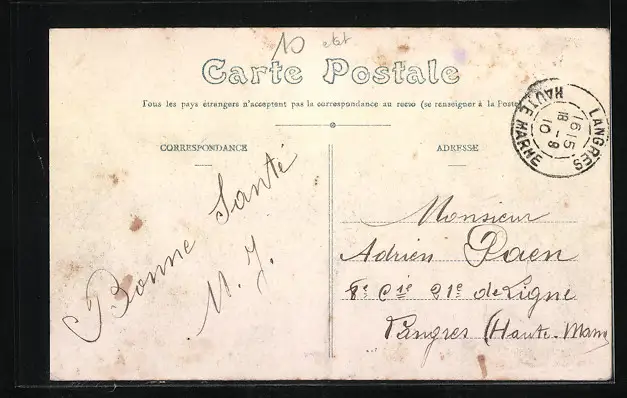 10 etat
Carte Postale
Tous les pays étrangers n'acceptent pas la correspondance au recto (se renseigner à la Poste)
CORRESPONDANCE
ADRESSE
LANGRES
HAUTE MARNE
1615
18 - 8
10
Bonne Santé
M. J.
Monsieur
Adrien Paen
8e Cie 21e de Ligne
Langres (Haute-Marn